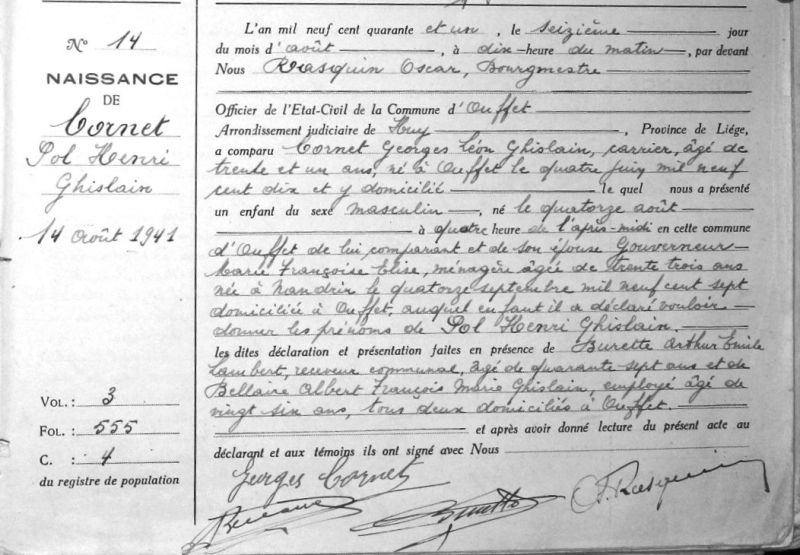 N° 14
NAISSANCE
DE
Cornet
Pol Henri
Ghislain
14 Août 1941
VOL. : 3
FOL. : 555
C. : 4
du registre de population
L'an mil neuf cent quarante et un, le seizième jour
du mois d'août, à dix heure du matin, par devant
Nous Rasquin Oscar, Bourgmestre
Officier de l'Etat-Civil de la Commune d'Ouffet
Arrondissement judiciaire de Huy, Province de Liége,
a comparu Cornet Georges Léon Ghislain, carrier, âgé de
trente et un ans, né à Ouffet le quatre juin mil neuf
cent dix et y domicilié le quel nous a présenté
un enfant du sexe masculin, né le quatorze août
à quatre heure de l'après-midi en cette commune
d'Ouffet de lui comparant et de son épouse Gouverneur
Marie Françoise Elise, ménagère âgée de trente trois ans
née à Nandrin le quatorze septembre mil neuf cent sept
domiciliée à Ouffet, auquel enfant il a déclaré vouloir
donner les prénoms de Pol Henri Ghislain.
les dites déclaration et présentation faites en présence de Burette Arthur Emile
Lambert, receveur communal, âgé de quarante sept ans et de
Bellaire Albert François Marie Ghislain, employé âgé de
vingt six ans, tous deux domiciliés à Ouffet.
et après avoir donné lecture du présent acte au
déclarant et aux témoins ils ont signé avec Nous
Georges Cornet
Burette
O. Rasquin